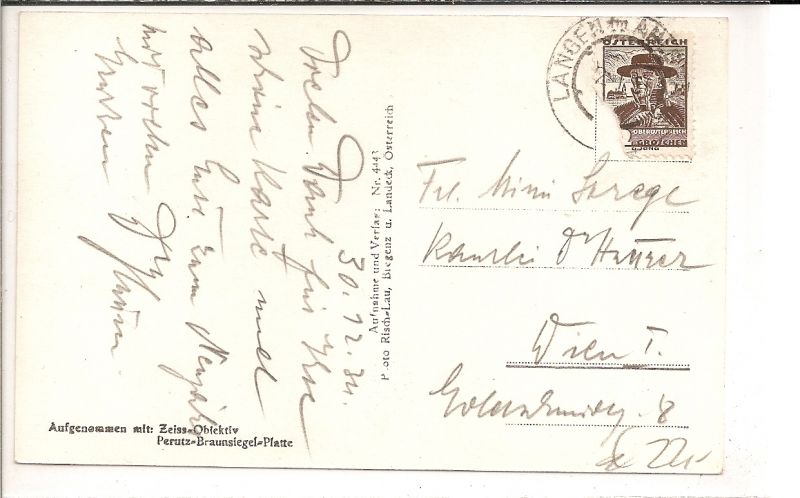 30.12.34.
Vielen Dank für Ihre
schöne Karte und
alles Gute zum Neujahr
mit vielen
Grüssen Ihr
Aufnahme und Verlag: Nr. 4443
Photo Risch-Lau, Bregenz u. Landeck, Österreich
Aufgenommen mit: Zeiss-Objektiv
Perutz-Braunsiegel-Platte
LANGEN am ARL
ÖSTERREICH
OBERÖSTERREICH
GROSCHEN
Frl. Mimi
Kanzlei Dr
Wien I.
Goldschmidg. 8